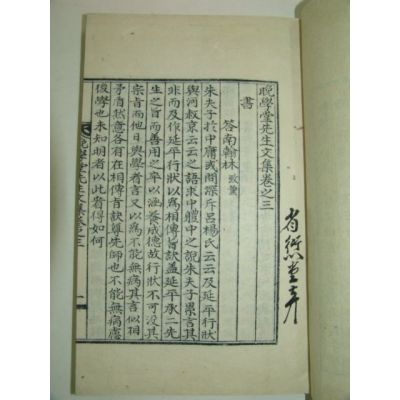 晚學堂先生文集卷之三
書
答南翰林 致薰
朱夫子於中庸或問深斥呂楊氏云云及延平行狀
與河叔京云云之語求中體中之說朱夫子累言其
非而及作延平行狀以爲相傳旨訣盖延平承二先
生之旨而善用之卒以涵養成德故行狀不可沒其
宗旨而其他日與學者言又以爲不能無病其言似相
矛盾然意各有在相傳旨訣尊先師也不能無病慮
後學也未知明者以此看得如何
晚學堂先生文集卷之三
一